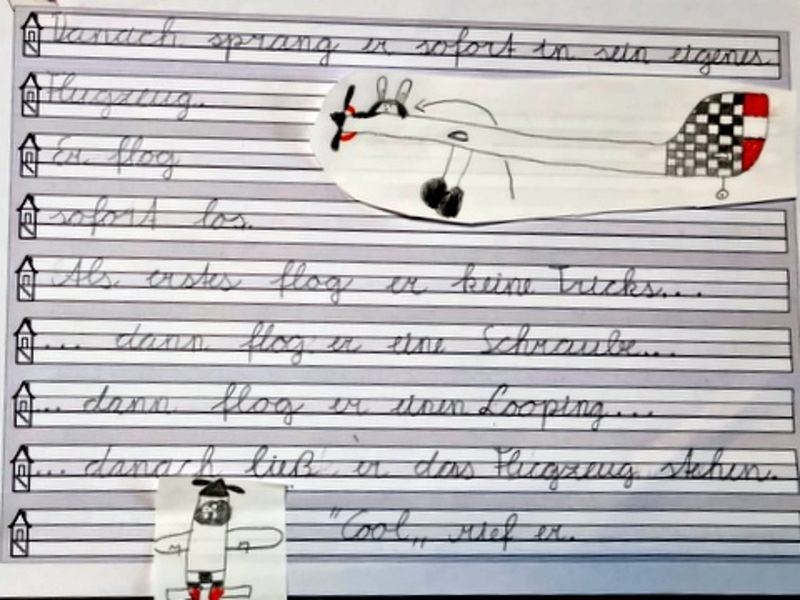 Danach sprang er sofort in sein eigenes
Flugzeug.
Er flog
sofort los.
Als erstes flog er keine Tricks...
... dann flog er eine Schraube...
... dann flog er einen Looping...
... danach ließ er das Flugzeug stehen.
"Cool„ rief er.